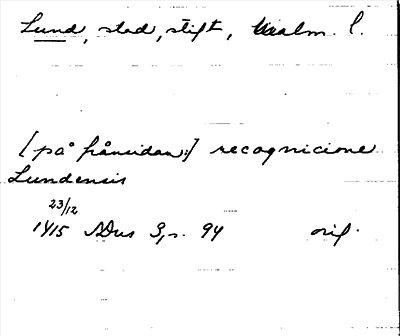 Lund, stad, stift, Malm. l.
[på frånsidan:] recognicione
Lundensis
23/12
1415 SDns 3, s. 94 orig.